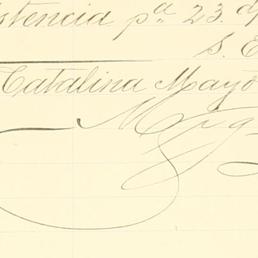 istencia pª 23. d
S. E
Catalina Mayo
Mig